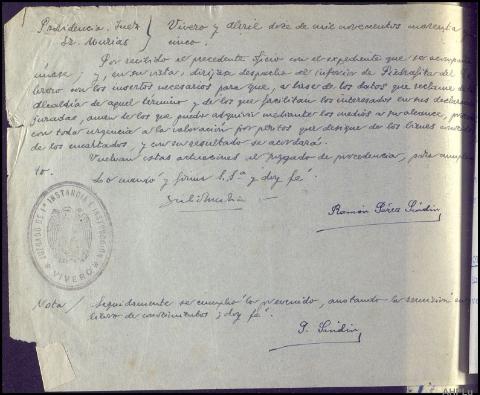 Providencia Juez
Sr. Murias
Vivero y Abril doce de mil novecientos cuarenta y
cinco.
Por recibido el precedente oficio con el expediente que se acompaña
únase; y, en su vista, dirijase despacho al inferior de Piedrafita del
Cebrero con los insertos necesarios para que, a base de los datos que reclame de la
Alcaldía de aquel término y de los que facilitan los interesados en sus declara
juradas, amén de los que pueda adquirir mediante los medios a su alcance,
con toda urgencia a la valoración por peritos que designe de los bienes
de los encartados, y con su resultado se acordará.
Vuelvan estas actuaciones al juzgado de procedencia, para
to.
Lo mandó y firma S.Sª y doy fé.
Ramón Pérez Sindín
JUZGADO DE 1ª INSTANCIA E INSTRUCCION
VIVERO
Nota/ Seguidamente se cumplió lo prevenido, anotando la remisión en
libro de conocimientos y doy fé.
P. Sindín